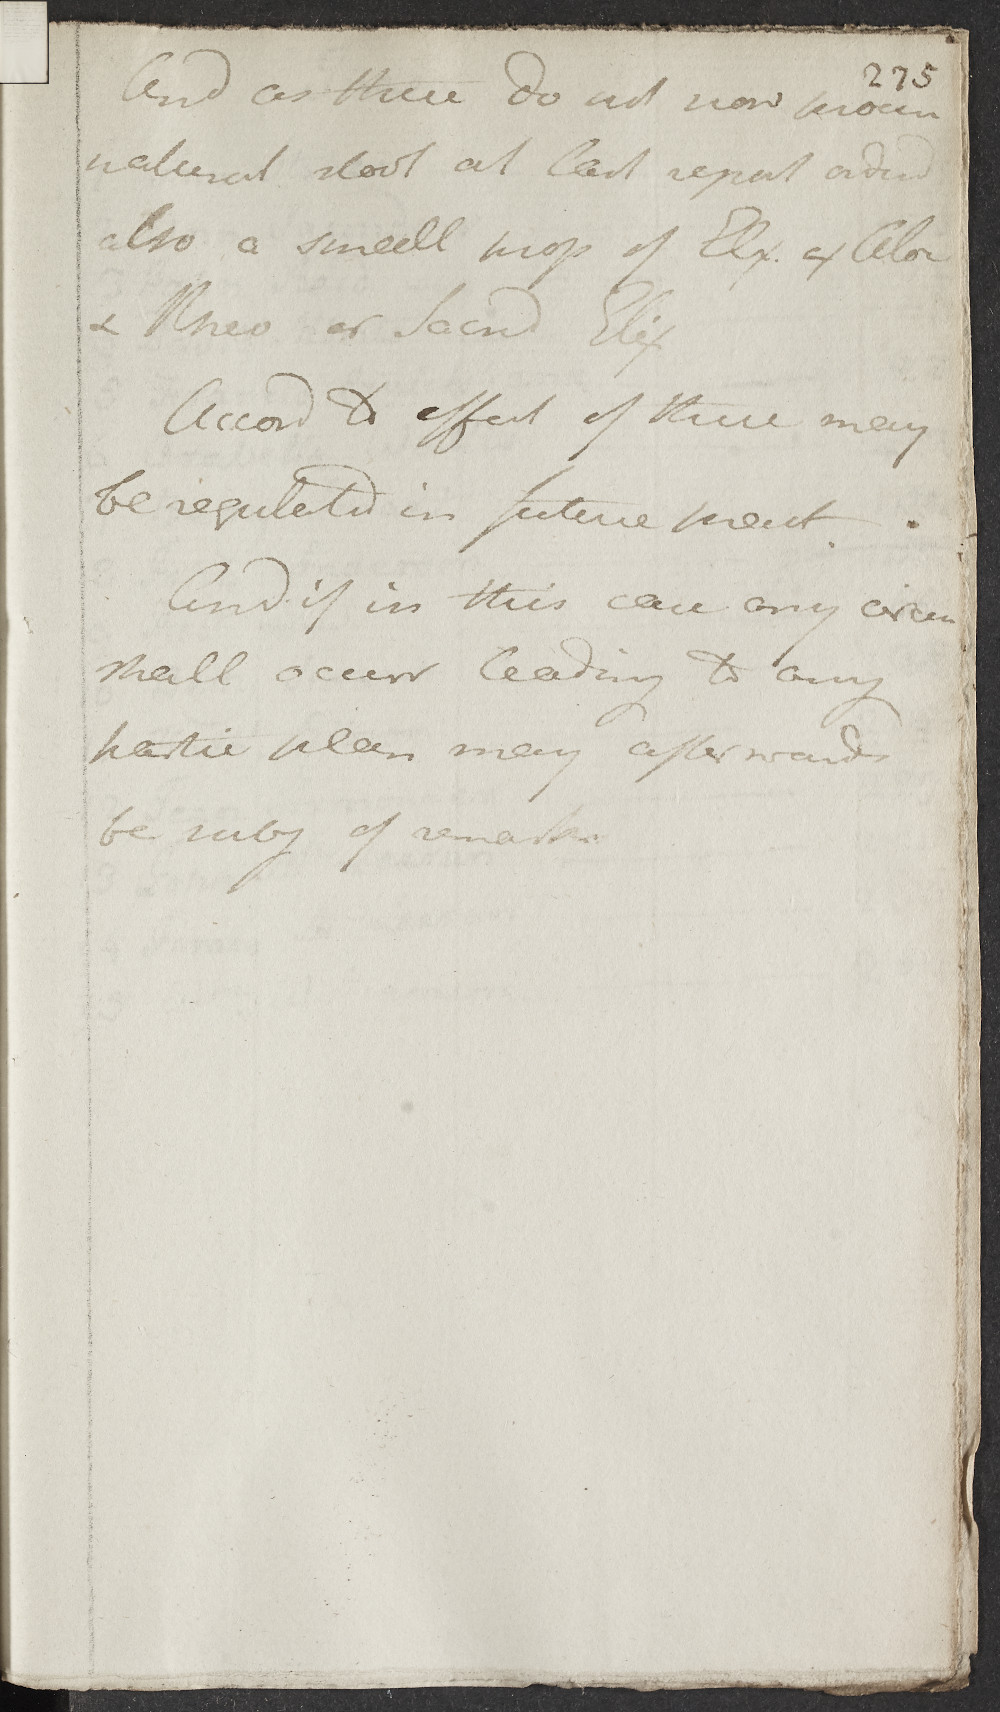 275
And as these do not now procur
natural stool at last report ordered
also a small prop of Elix. ex Aloe
& Rheo or Sacrd Elix
Accord to effect of these may
be regulated in future pract.
And if in this case any circum
shall occurr leading to any
partic plan may afterwards
be subj of remarks